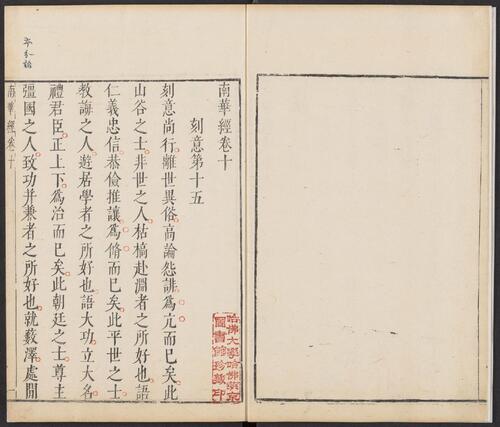 南華經卷十
刻意第十五
刻意尚行。離世異俗。高論怨誹。爲亢而已矣。此
山谷之士。非世之人。枯槁赴淵者之所好也。語
仁義忠信。恭儉推讓。爲脩而已矣。此平世之士
教誨之人。遊居學者之所好也。語大功。立大名。
禮君臣。正上下。爲治而已矣。此朝廷之士。尊主
彊國之人。致功并兼者之所好也。就藪澤。處閒
南華經卷十
哈佛大學哈佛燕京
圖書館珍藏印